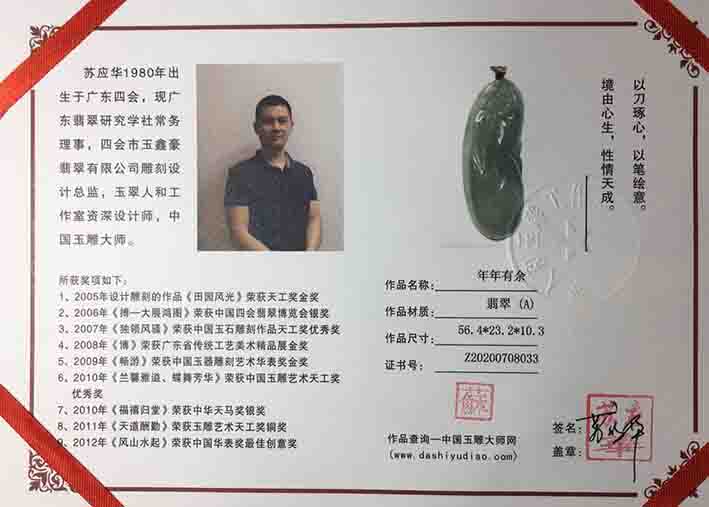 苏应华1980年出
生于广东四会，现广
东翡翠研究学社常务
理事，四会市玉鑫豪
翡翠有限公司雕刻设
计总监，玉翠人和工
作室资深设计师，中
国玉雕大师。
以刀琢心，以笔绘意。
境由心生，性情天成。
所获奖项如下：
1、2005年设计雕刻的作品《田园风光》荣获天工奖金奖
2、2006年《搏一大展鸿图》荣获中国四会翡翠博览会银奖
3、2007年《独领风骚》荣获中国玉石雕刻作品天工奖优秀奖
4、2008年《博》荣获广东省传统工艺美术精品展金奖
5、2009年《畅游》荣获中国玉器雕刻艺术华表奖金奖
6、2010年《兰馨雅道、蝶舞芳华》荣获中国玉雕艺术天工奖
优秀奖
7、2010年《福禧归堂》荣获中华天马奖银奖
8、2011年《天道酬勤》荣获玉雕艺术天工奖铜奖
9、2012年《风山水起》荣获中国华表奖最佳创意奖
作品名称：年年有余
作品材质：翡翠（A）
作品尺寸：56.4*23.2*10.3
证书号：Z20200708033
蘇
作品查询—中国玉雕大师网
(www.dashiyudiao.com)
签名：苏应华
盖章：